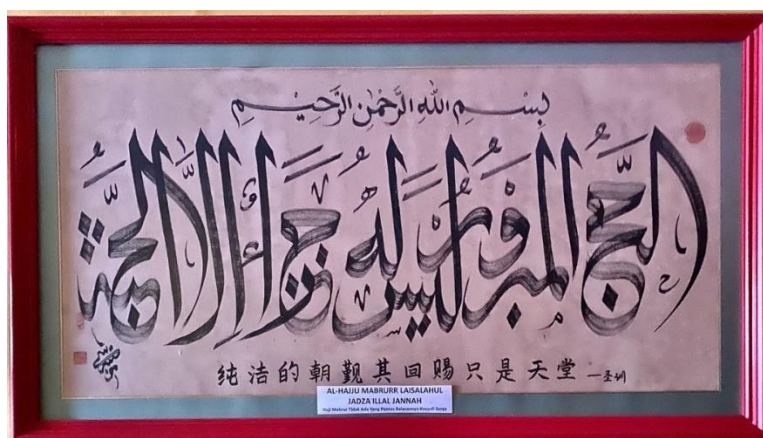 بِسْمِ اللهِ الرَّحْمٰنِ الرَّحِيْمِ
الحَجُّ المَبْرُوْرُ لَيْسَ لَهُ جَزَاءٌ إِلَّا الجَنَّةُ
纯洁的朝觐其回赐只是天堂 一圣训
AL-HAJJU MABRURR LAISALAHUL
JADZA ILLAL JANNAH
Haji Mabrur Tidak Ada Yang Pantas Balasannya Kecuali Surga